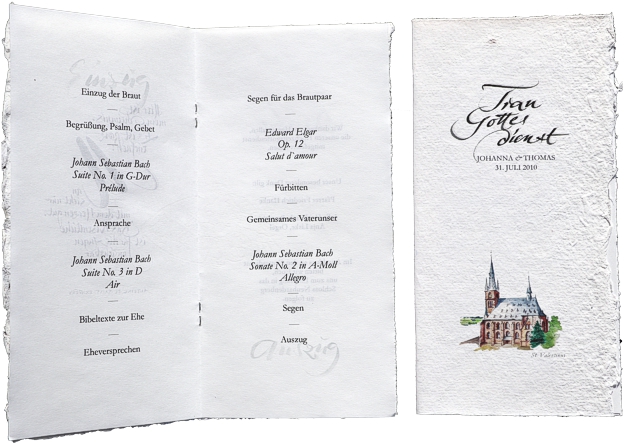 Einzug der Braut
—
Begrüßung, Psalm, Gebet
—
Johann Sebastian Bach
Suite No. 1 in G-Dur
Prélude
—
Ansprache
—
Johann Sebastian Bach
Suite No. 3 in D
Air
—
Bibeltexte zur Ehe
—
Eheversprechen
Segen für das Brautpaar
—
Edward Elgar
Op. 12
Salut d´amour
—
Fürbitten
—
Gemeinsames Vaterunser
—
Johann Sebastian Bach
Sonate No. 2 in A-Moll
Allegro
—
Segen
—
Auszug
Trau
Gottes
dienst
JOHANNA & THOMAS
31. JULI 2010
St Valentinus